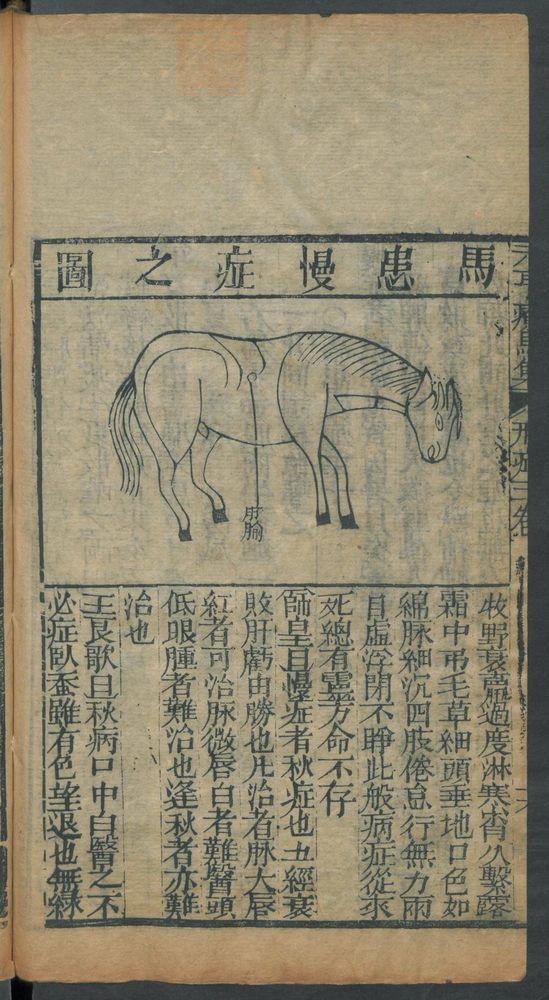 馬患慢症之圖
肝腧
牧野衰羸過度淋寒宵久繫露
霜中弔毛草細頭垂地口色如
綿脉細沉四肢倦怠行無力兩
目虛浮閉不睜此般病症從來
死總有靈方命不存
師皇曰慢症者秋症也五經衰
敗肝虧由勝也凡治者脉大唇
紅者可治脉微唇白者難醫頭
低眼腫者難治也逢秋者亦難
治也
王良歌曰秋病口中白醫之不
必症臥蚕雖有色望退也無緣